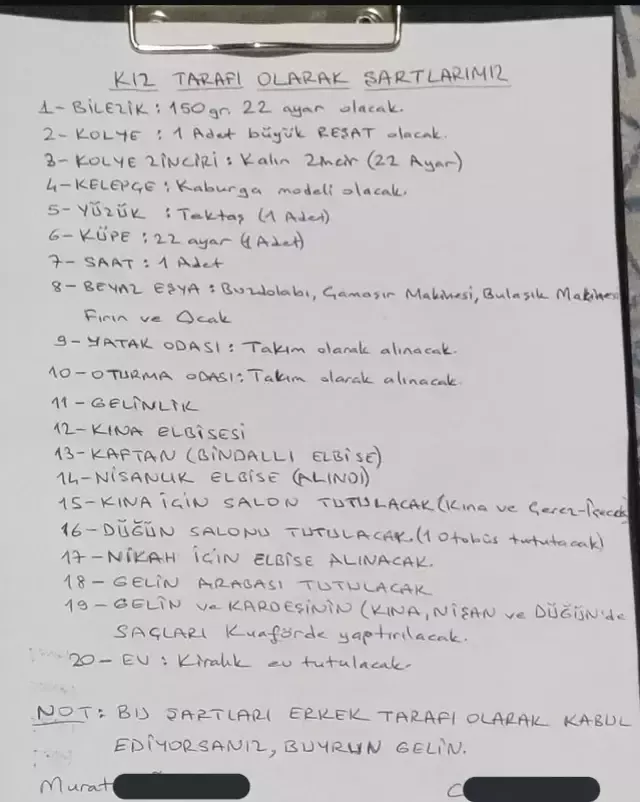 KIZ TARAFI OLARAK ŞARTLARIMIZ
1- BİLEZİK : 150 gr. 22 ayar olacak.
2- KOLYE : 1 Adet büyük REŞAT olacak.
3- KOLYE ZİNCİRİ : Kalın Zincir (22 Ayar)
4- KELEPÇE : Kaburga modeli olacak.
5- YÜZÜK : Tektaş (1 Adet)
6- KÜPE : 22 ayar (1 Adet)
7- SAAT : 1 Adet
8- BEYAZ EŞYA : Buzdolabı, Çamaşır Makinesi, Bulaşık Makinesi
Fırın ve Ocak
9- YATAK ODASI : Takım olarak alınacak.
10- OTURMA ODASI : Takım olarak alınacak.
11 - GELİNLİK
12- KINA ELBİSESİ
13- KAFTAN (BİNDALLI ELBİSE)
14- NİŞANLIK ELBİSE (ALINDI)
15- KINA İÇİN SALON TUTULACAK (Kına ve Çerez-İçecek)
16- DÜĞÜN SALONU TUTULACAK. (1 Otobüs tutulacak)
17 - NİKAH İÇİN ELBİSE ALINACAK.
18 - GELİN ARABASI TUTULACAK
19 - GELİN ve KARDEŞİNİN (KINA, NİŞAN ve DÜĞÜN'de
SAÇLARI Kuaförde yaptırılacak.
20- EV : Kiralık ev tutulacak.
NOT : BU ŞARTLARI ERKEK TARAFI OLARAK KABUL
EDİYORSANIZ, BUYRUN GELİN.
Murat
C